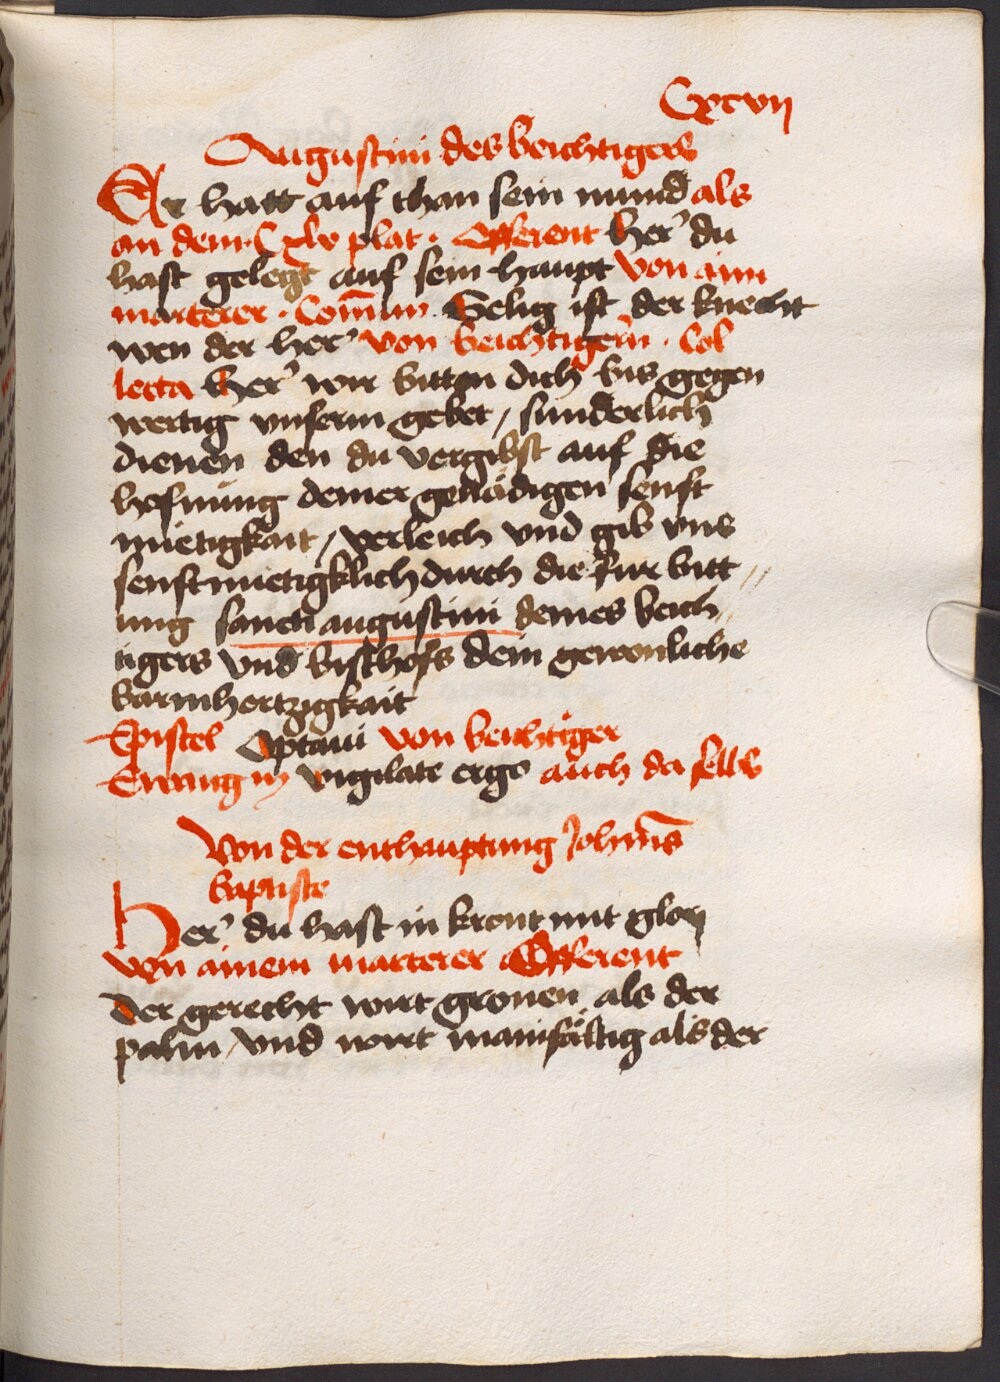 Cxcvii
Augustini des beichtigers
Er hatt auf than sein mund als
an dem Cxlv plat · Offerent her' du
hast gelegt auf sein haupt von aim
marterer · Com̄un Selig ist der knecht
wen der her' von beichtigern · Col
lecta Her' wir bitten dich bis gegen
wertig unserm gebet / sunderlich
dienen den du vergibst auf die
hofnung deiner genådigen senft
mietigkait / verleich und gib uns
senftmietigklich durch die fur bitt //
ung sancti augustini deines beich //
tigers und bischofs dein gewonliche
barmhertzigkait
Epistel Optavi von beichtiger
Ewangm vigilate ergo auch da selbs
Von der enthauptung Johan̄is
baptiste
Her' du hast in kront mit glory
von ainem marterer Offerent
Der gerecht wirt gronen als der
palm / und wirt manifåltig als der